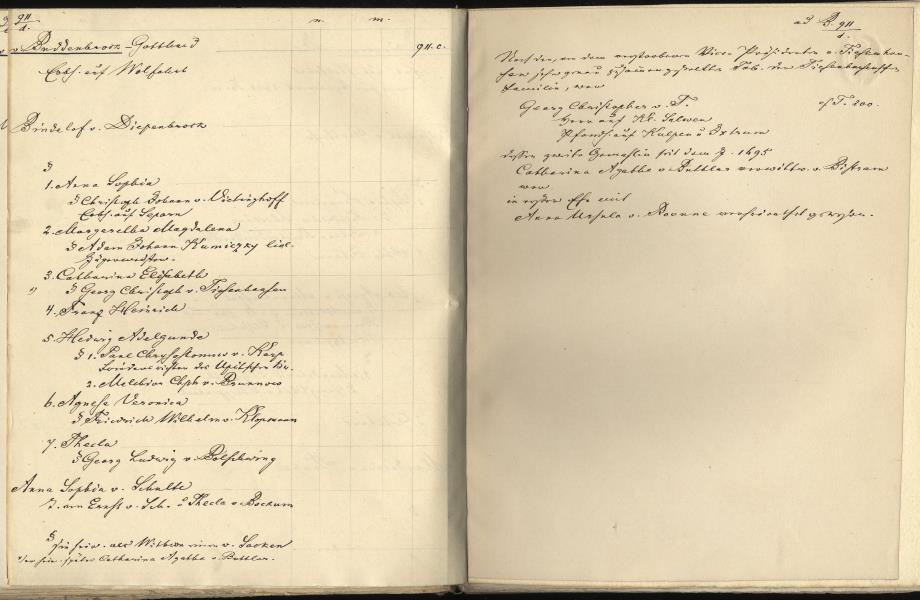 911
d.
n. m.
v. Buddenbrock-Gotthard 911.c.
Erbh. auf Wolfahrt
Bindelof v. Diepenbrock
§
1. Anna Sophia
§ Christoph Johann v. Vietinghoff
Erbh. auf
2. Margaretha Magdalena
§ Adam Johann Kumiczky
Jägermeister.
3. Catharina Elisabeth
§ Georg Christoph v. Tiesenhausen
4. Franz Heinrich
5. Hedwig Adelgunde
§ 1. Paul Chrysostomus v.
des Upitschen
2. Melchior Chph v. Brunnow
6. Agnesa Veronica
§ Friedrich Wilhelm v. Klopmann
7. Thecla
§ Georg Ludwig v. Bölschwing
Anna Sophia v. Schulte
T. von Ernst v. Sch. u Thecla v. Bockum
§
Sie als Wittwe einen v. Sacken
später Catharina Agatha v. Buttlar.
ad B. 911
d.
von dem verstorbenen Vice Präsidenten v.
sehr genau der
Familie, war
Georg Christopher v. T. T. 200.
Herr auf Kl. Salwen
Pfandh. auf Kulpen u
dessen zweite Gemahlin seit dem J. 1695
Catharina Agatha v. Buttlar verwittw. v. Bistram
war
in erster Ehe mit
Anna Ursula v. Roenne wahrscheinlich gewesen.